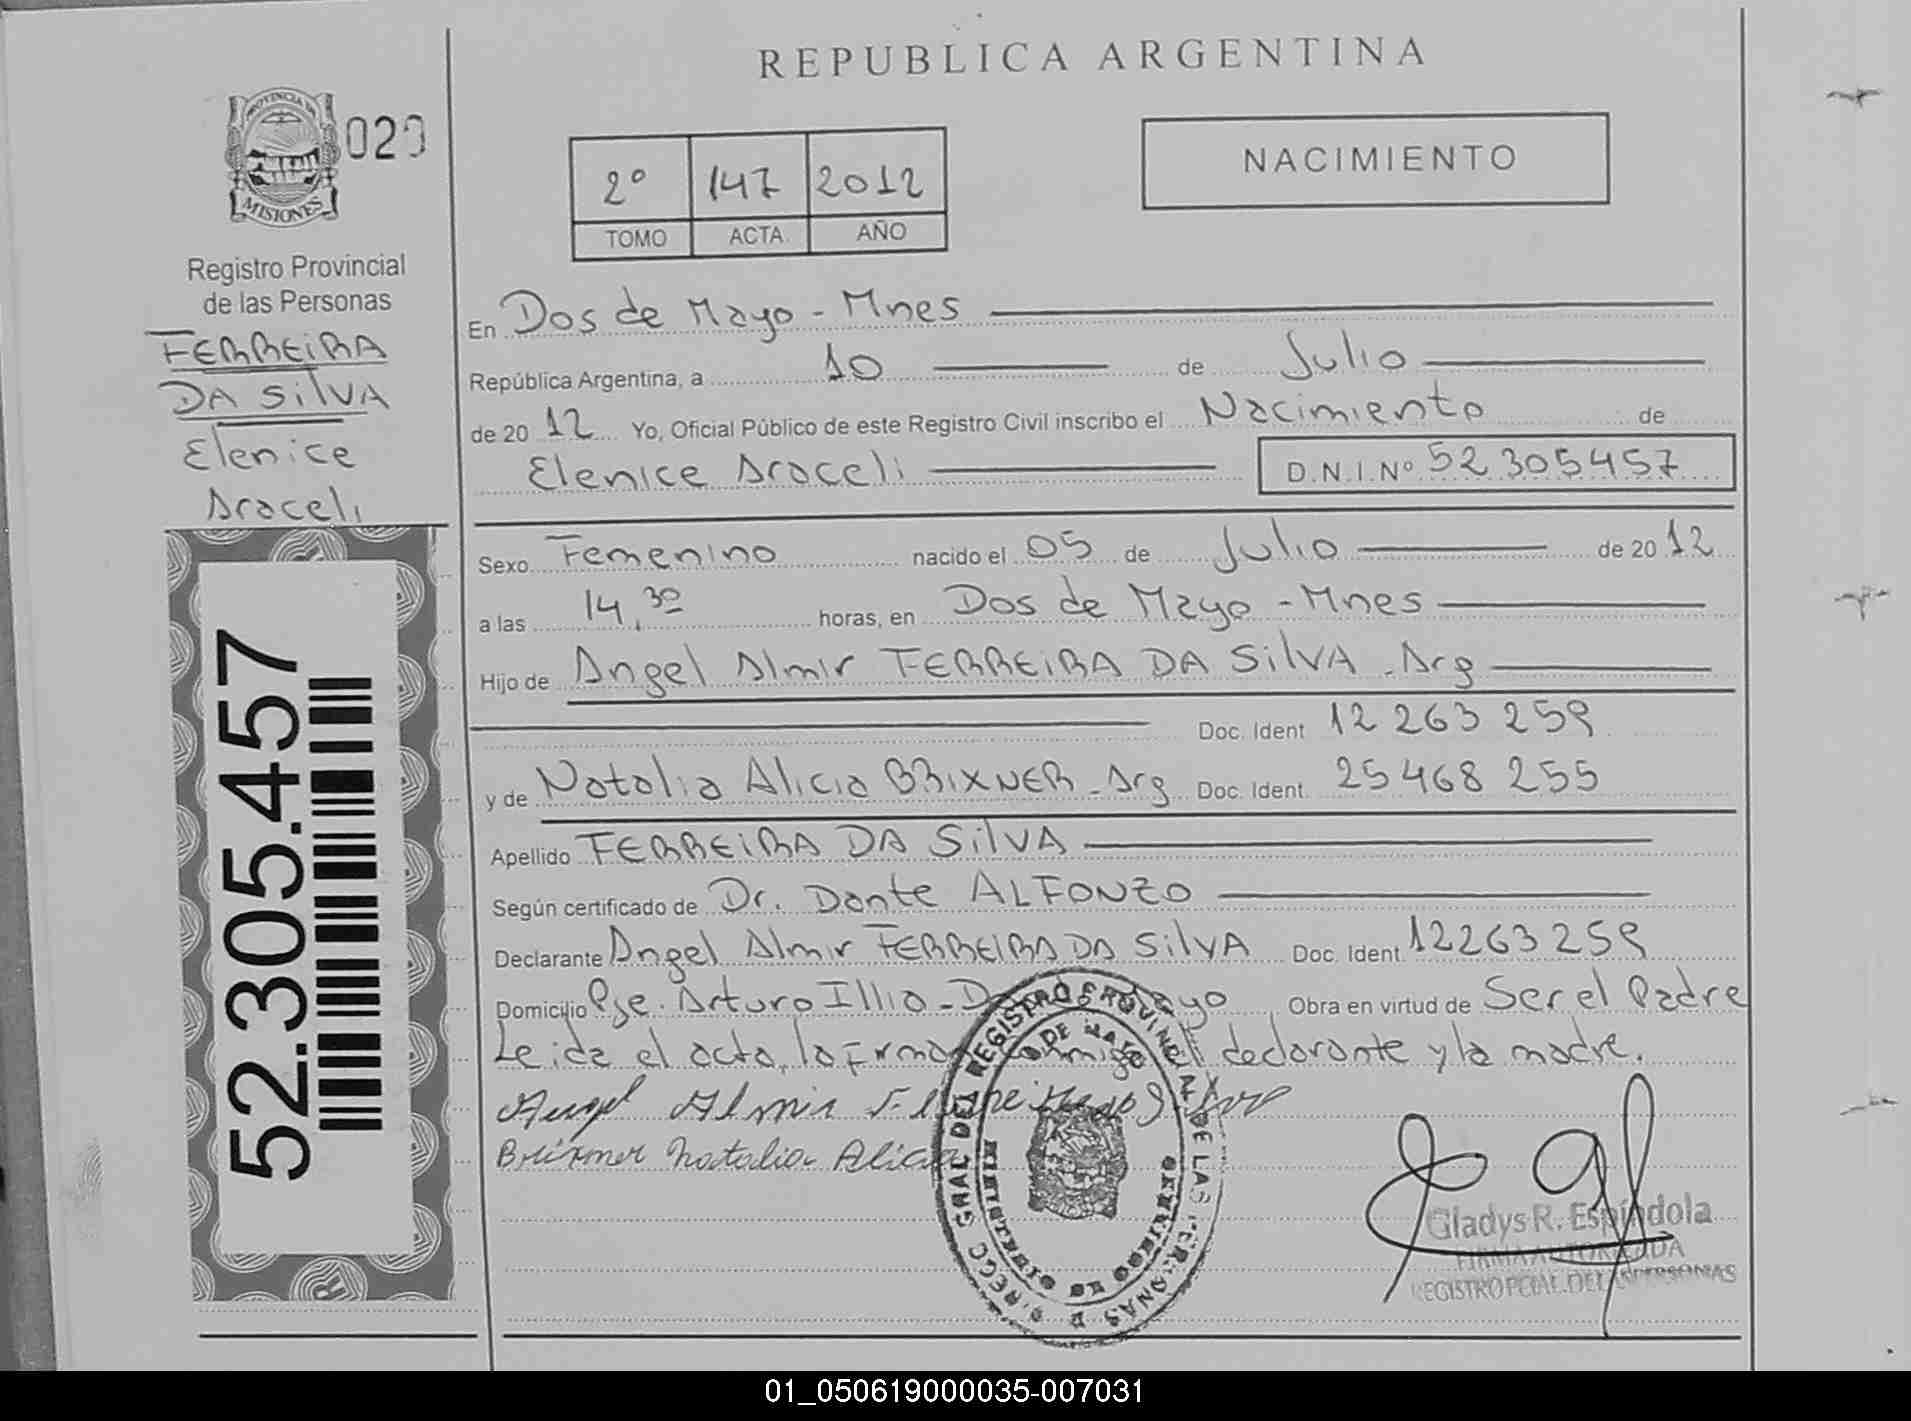 REPUBLICA ARGENTINA
PROVINCIA DE
MISIONES
020
Registro Provincial
de las Personas
FERREIRA
DA SilVA
Elenice
Araceli
52.305.457
2º 147 2012
TOMO ACTA AÑO
NACIMIENTO
En Dos de Mayo - Mnes
República Argentina, a 10 de Julio
de 2012 Yo, Oficial Público de este Registro Civil inscribo el Nacimiento de
Elenice Araceli D.N.I.Nº 52 305457
Sexo Femenino nacido el 05 de Julio de 2012
a las 14,30 horas, en Dos de Mayo - Mnes
Hijo de Angel Almir FERREIRA DA SilVA - Arg
Doc. Ident 12 263 259
y de Natalia Alicia BRIXNER - Arg Doc. Ident. 25 468 255
Apellido FERREIRA DA SilVA
Según certificado de Dr. Dante ALFONZO
Declarante Angel Almir FERREIRA DA SilVA Doc. Ident. 12263259
Domicilio Pje. Arturo Illia - Dos de Mayo Obra en virtud de Ser el Padre
Leida el acta, la firman conmigo el declarante y la madre.
Angel Almir
Brixner Natalia Alicia
DIREC. GRAL DEL REGISTRO PROVINCIAL DE LAS PERSONAS
2 DE MAYO
MINISTERIO DE GOBIERNO
Gladys R. Espíndola
FIRMA AUTORIZADA
REGISTRO PCIAL. DE LAS PERSONAS
01_050619000035-007031